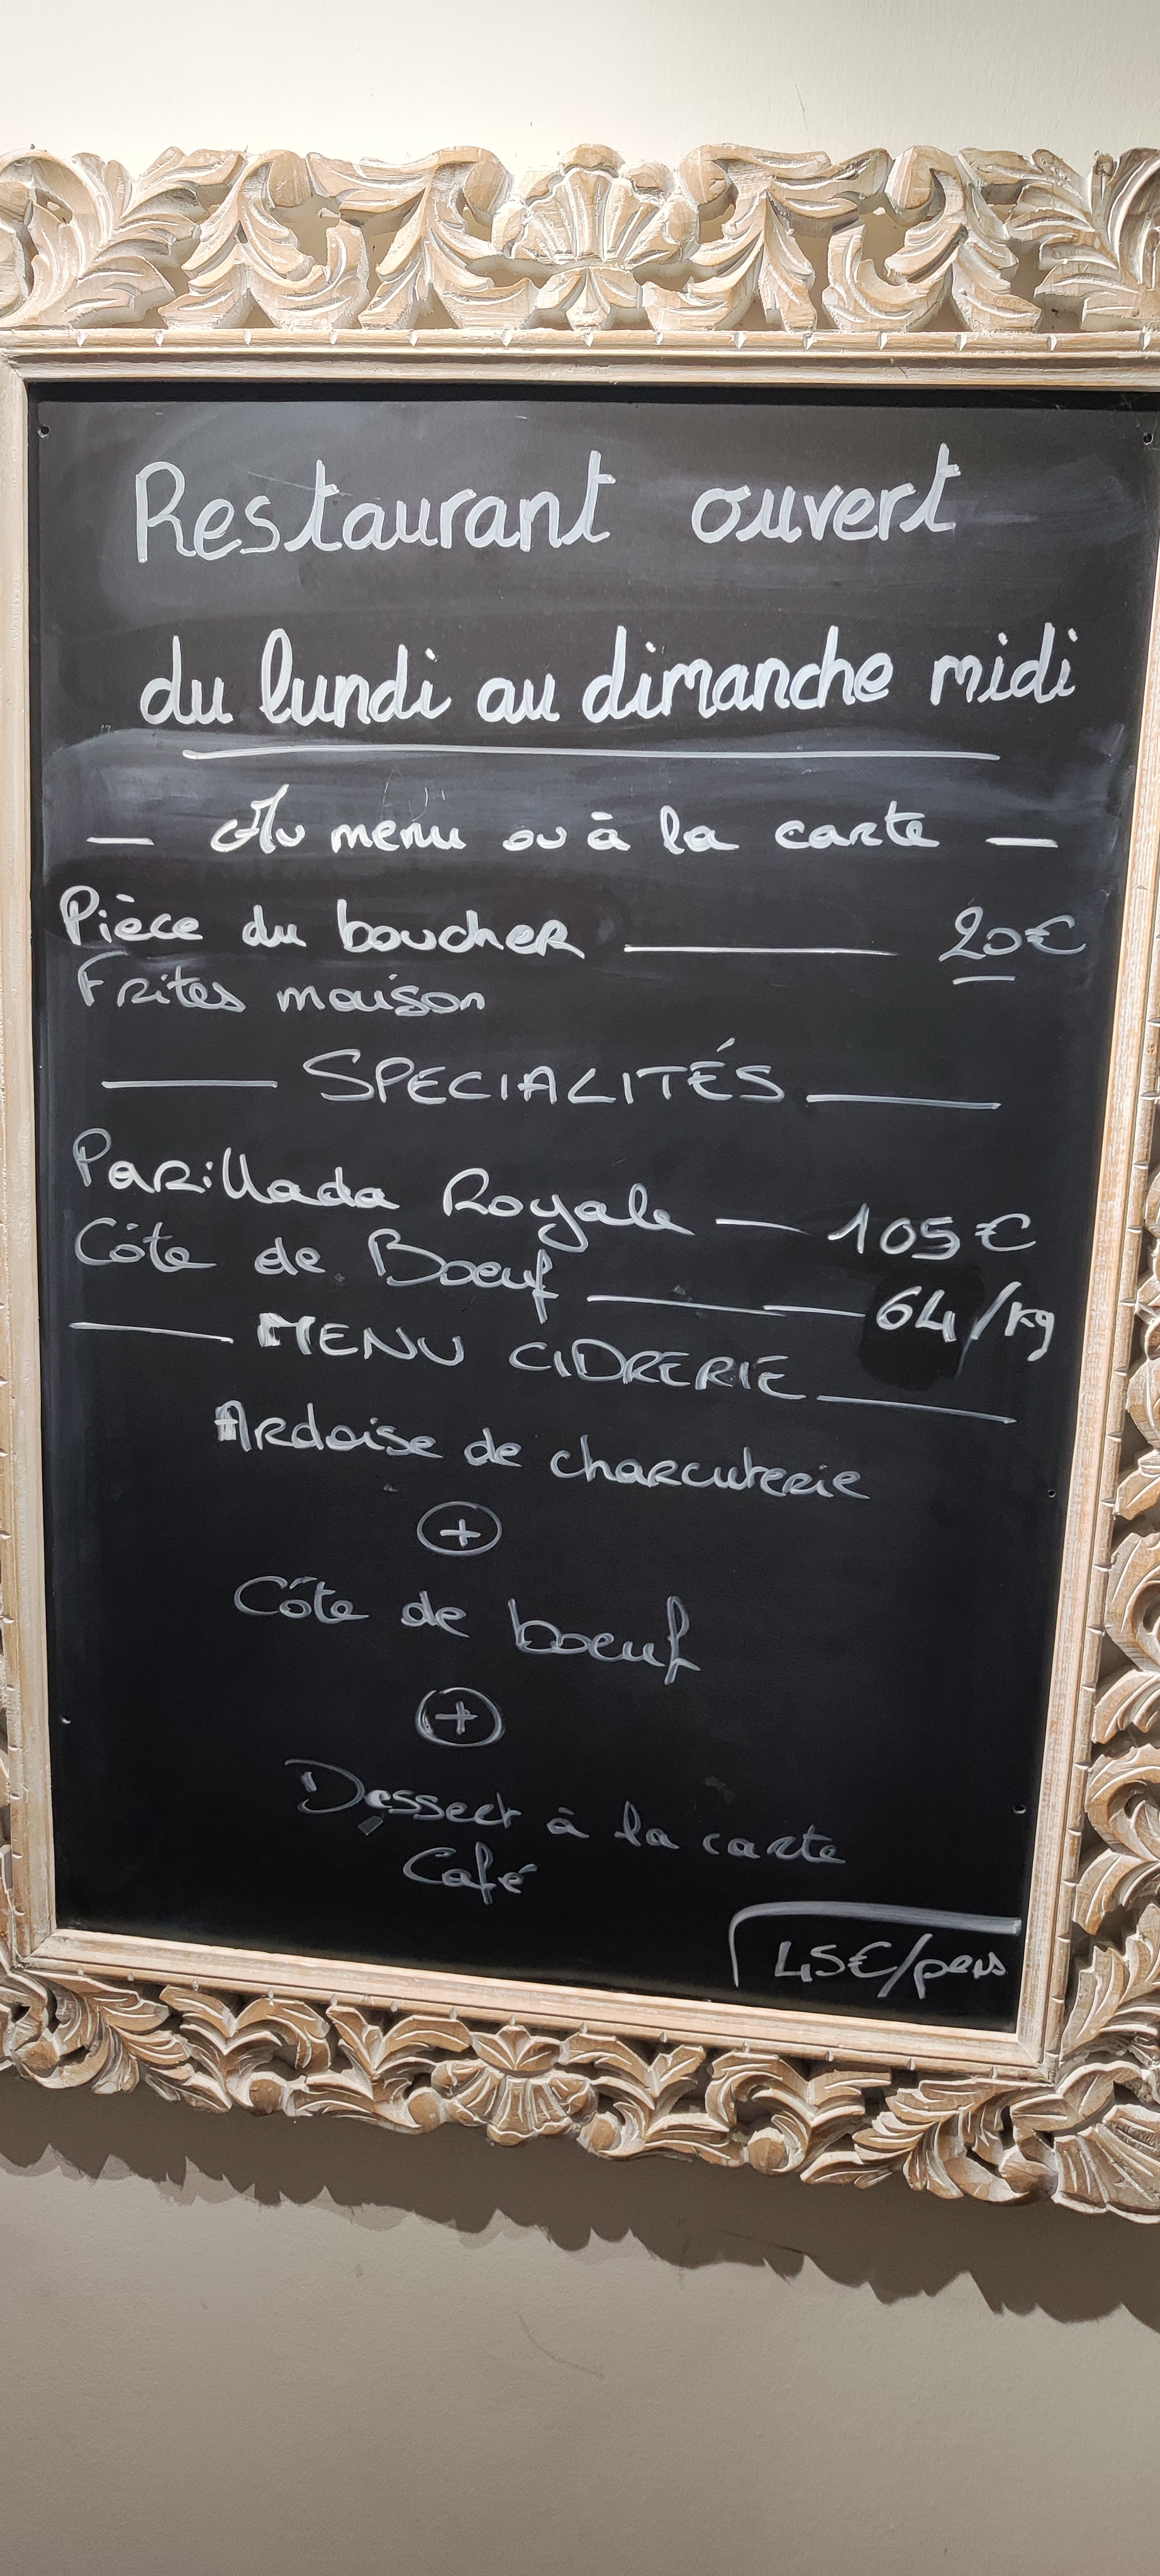 Restaurant ouvert
du lundi au dimanche midi
— Au menu ou à la carte —
Pièce du boucher — 20€
Frites maison
— SPECIALITÉS —
Parillada Royale — 105€
Côte de Boeuf — 64/kg
— MENU CIDRERIE —
Ardoise de charcuterie
+
Côte de boeuf
+
Dessert à la carte
Café
45€/pers